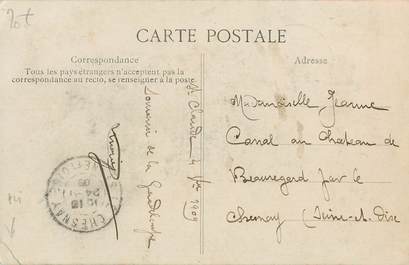 CARTE POSTALE
Correspondance
Tous les pays étrangers n'acceptent pas la
correspondance au recto, se renseigner à la poste.
Adresse
St Claude 4 1909
Souvenir de la Guadeloupe
Mademoiselle Jeanne
Canal au Chateau de
Beauregard par le
Chesnay (Seine-et-Oise
CHESNAY